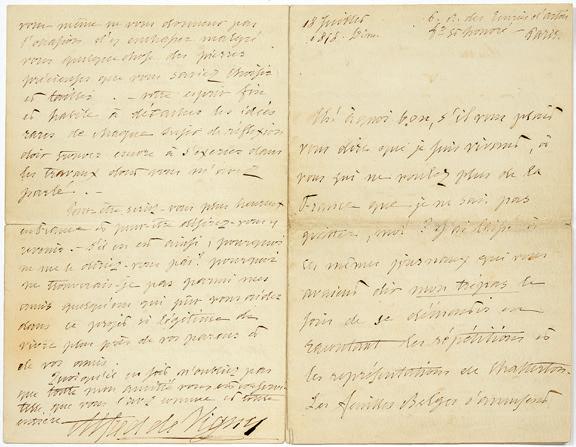 vous-même ne vous donnent pas
l'occasion d'y enchasser malgré
vous quelque chose des pierres
précieuses que vous saviez choisir
et tailler. - votre esprit fin
et habile à détacher les idées
rares de chaque sujet de réflexion
doit trouver encore à s'exercer dans
les travaux dont vous m'avez
parlé. -
Peut-être seriez-vous plus heureux
en France et peut-être désirez-vous y
revenir. - S'il en est ainsi, pourquoi
ne me le diriez-vous pas? pourquoi
ne trouverais-je pas parmi mes
amis quelqu'un qui pût vous aider
dans ce projet si légitime de
vivre plus près de vos parens et
de vos amis.
Quoiqu'il en soit n'oubliez pas
que toute mon amitié vous est
que vous l'avez connue et toute
entière
Alfred de Vigny
18 juillet
6. r. des Ecuries d'artois
1848. Dim.
St honoré Paris.
Hé à quoi bon, s'il vous plaît
vous dire que je suis vivant, à
vous qui ne voulez plus de la
France que je ne sais pas
quitter, moi? J'ai laissé à
ces mêmes journaux qui vous
avaient dit mon trépas le
soin de se démentir en
racontant les répétitions et
les représentations de Chatterton.
Les feuilles Belges s'amusent